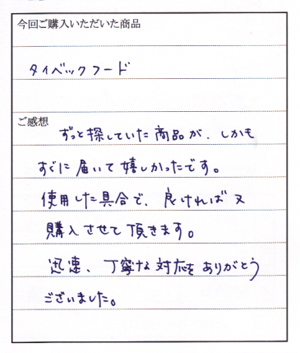 今回ご購入いただいた商品
タイベックフード
ご感想
ずっと探していた商品が、しかも
すぐに届いて嬉しかったです。
使用した具合で、良ければ又
購入させて頂きます。
迅速、丁寧な対応をありがとう
ございました。